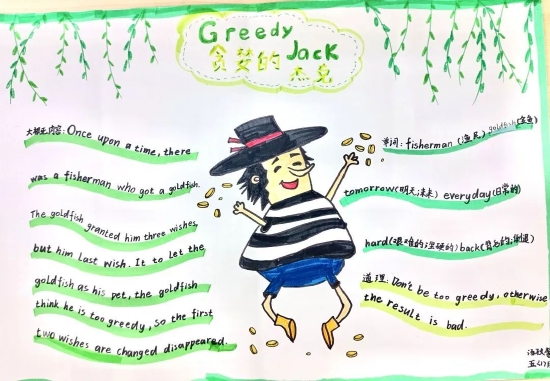 Greedy Jack
贪婪的杰克
大概内容: Once upon a time, there
was a fisherman who got a goldfish.
The goldfish granted him three wishes,
but him last wish. It to let the
goldfish as his pet, the goldfish
think he is too greedy, so the first
two wishes are changed disappeared.
单词: fisherman (渔民) goldfish (金鱼)
tomorrow(明天;未来) everyday(日常的)
hard(艰难的;坚硬的) back(背部的;
道理: Don't be too greedy, otherwise
the result is bad.